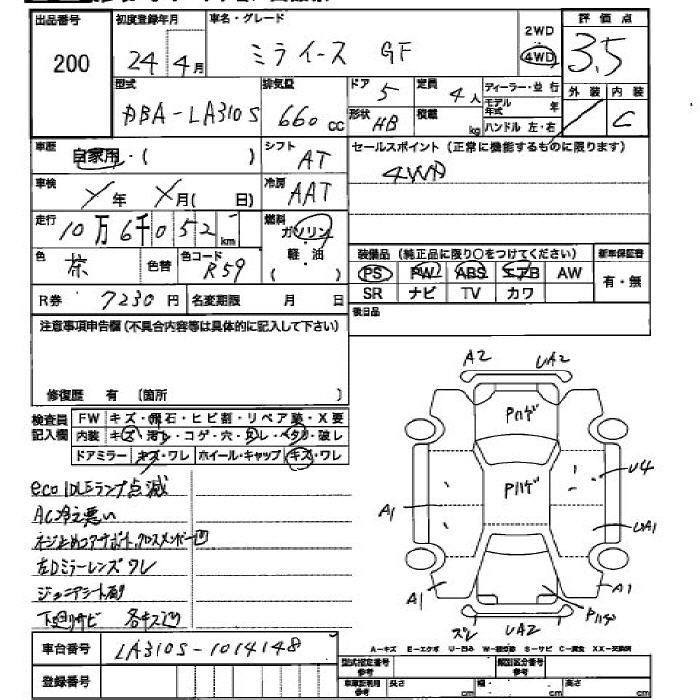 出品番号 200
初度登録年月 24年 4月
車名・グレード ミライース GF
2WD 4WD
評価点 3.5
外装 / 内装 C
型式 DBA-LA310S
排気量 660 cc
ドア 5
形状 HB
定員 4人
積載 kg
ディーラー・並行
モデル年式 年
ハンドル 左・右
車歴 自家用・( )
シフト AT
セールスポイント(正常に機能するものに限ります)
4WD
車検 年 月( 日)
冷房 AAT
走行 10万6千052 km
燃料 ガソリン 軽・油
色 茶 色替
色コード R59
装備品(純正品に限り○をつけてください)
PS PW ABS エアB AW
SR ナビ TV カワ
新車保証書 有・無
R券 7230円
名変期限 月 日
後日品
注意事項申告欄(不具合内容等は具体的に記入して下さい)
修復歴 有 (箇所 )
検査員記入欄
FW キズ・飛石・ヒビ割・リペア跡・X要
内装 キズ・汚レ・コゲ・穴・スレ・ヘタリ・破レ
ドアミラー キズ・ワレ ホイール・キャップ キズ・ワレ
eco IDLEランプ点滅
AC冷え悪い
左Dミラーレンズワレ
下廻りサビ 各キズ
A2 UA2
Pハゲ
Pハゲ
U4
A1
UA1
A1
A1
Pハゲ
スレ UA2
車台番号 LA310S-1014148
登録番号
A-キズ E-エクボ U-凹ミ S-サビ C-腐食 XX-交換済
型式指定番号 参考
類別区分番号 参考
車庫証明用 参考
長さ cm 幅 cm 高さ cm